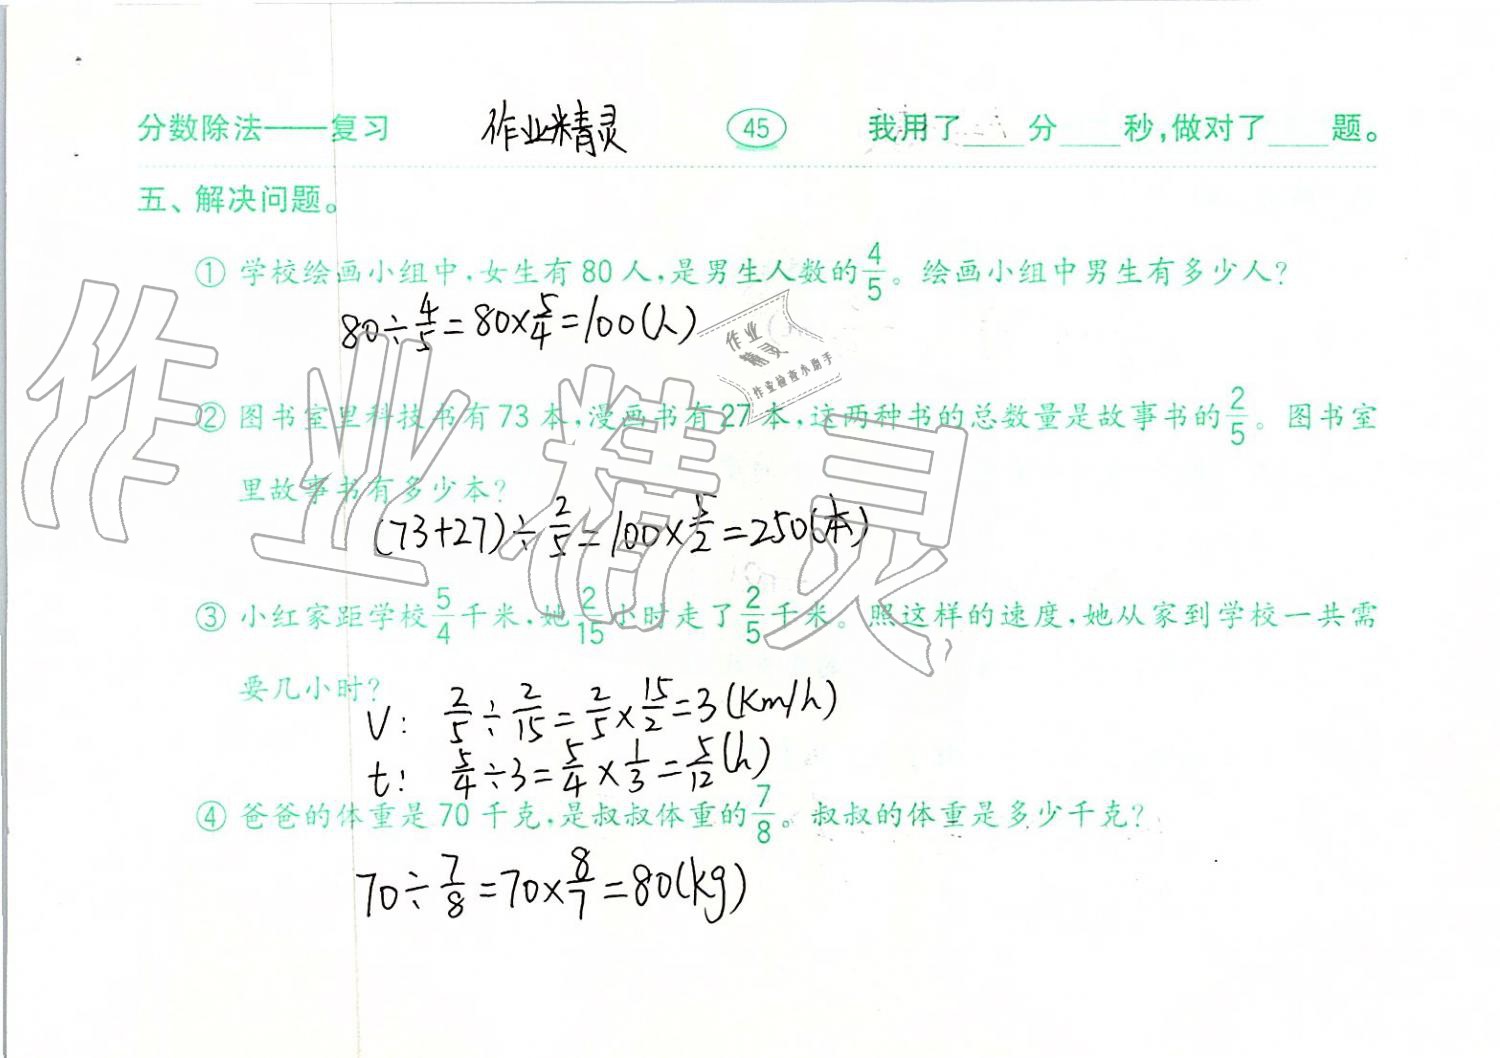 分数除法——复习 作业精灵 45 我用了____分____秒,做对了____题。
五、解决问题。
① 学校绘画小组中,女生有80人,是男生人数的4/5。绘画小组中男生有多少人?
80÷4/5=80×5/4=100(人)
作业
精灵
作业检查小助手
② 图书室里科技书有73本,漫画书有27本,这两种书的总数量是故事书的2/5。图书室
里故事书有多少本?
(73+27)÷2/5=100×5/2=250(本)
作业精灵
③ 小红家距学校5/4千米,她2/15小时走了2/5千米。照这样的速度,她从家到学校一共需
要几小时?
V: 2/5÷2/15=2/5×15/2=3(Km/h)
t: 5/4÷3=5/4×1/3=5/12(h)
④ 爸爸的体重是70千克,是叔叔体重的7/8。叔叔的体重是多少千克?
70÷7/8=70×8/7=80(kg)